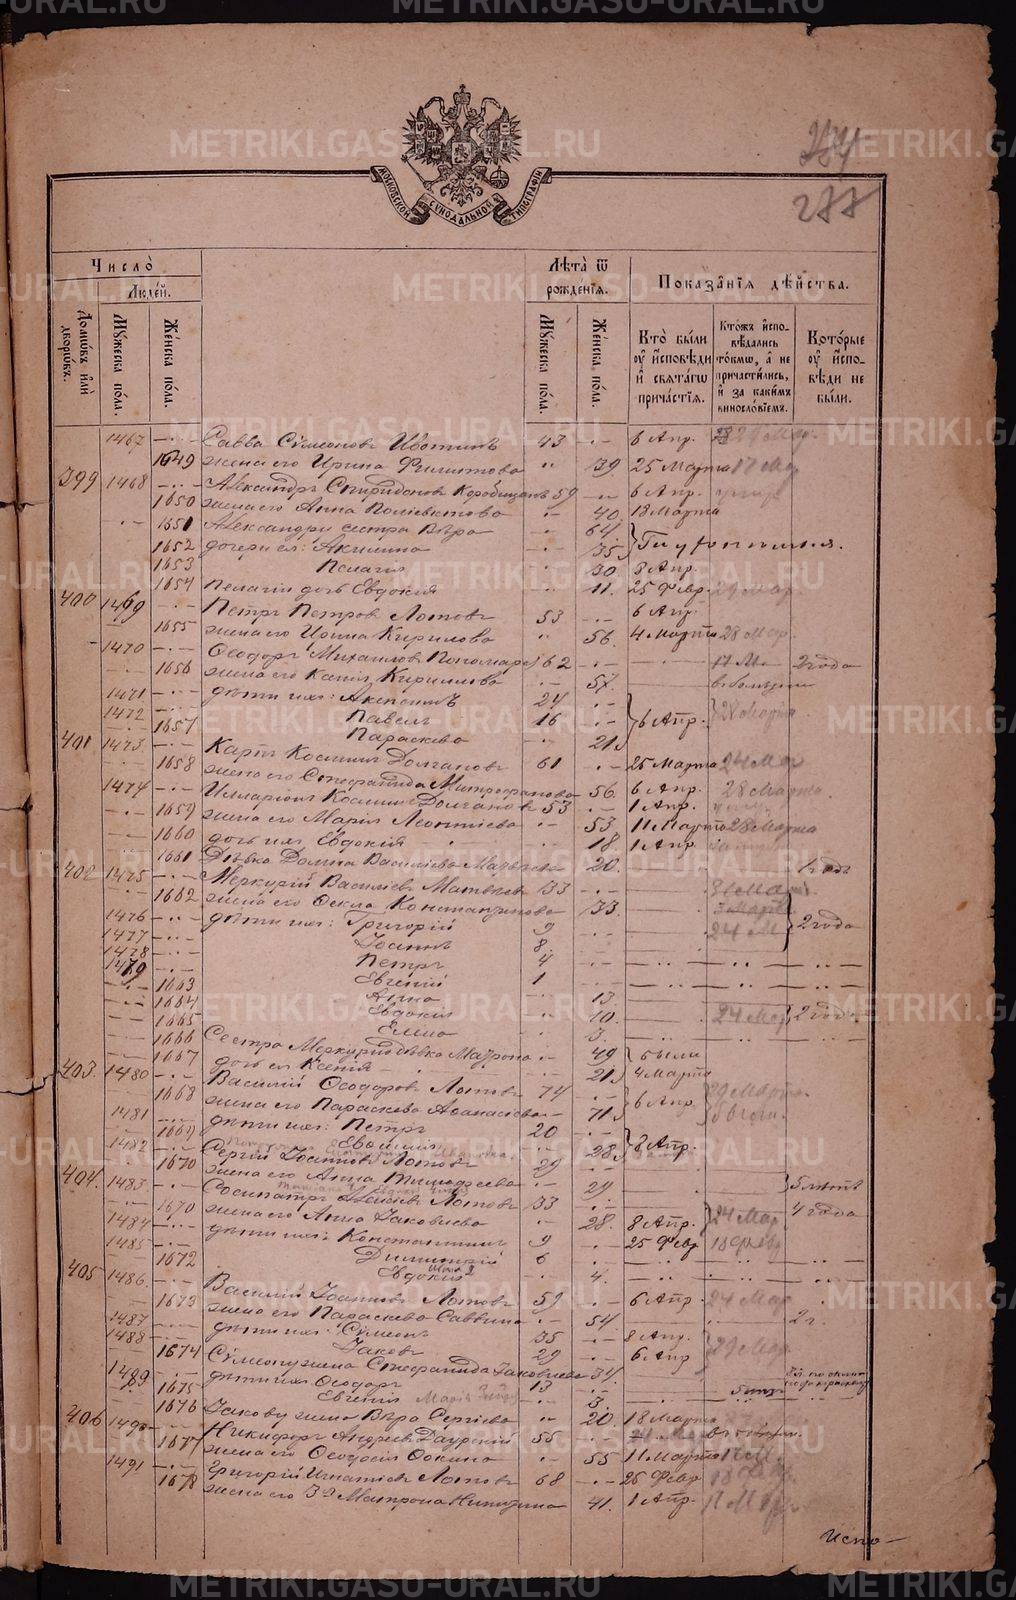 METRIKI.GASO-URAL.RU
284
277
МОСКОВСКОЙ СУНОДАЛЬНОЙ ТИПОГРАФІИ
Число
Людей.
Домωвъ или дворωвъ.
Мужеска пола.
Женска пола.
Лѣта ѿ рожденїя.
Мужеска пола.
Женска пола.
Показанїя дѣйства.
Кто были у исповѣди и свѧтагω причастїя.
Ктожъ исповѣдались токмω, а не причастились, и за какимъ винословїемъ.
Которые у исповѣди не были.
1467 Савва Сѵмеоновъ 43 6 Апр.
1649 жена его Ирина Филиппова 39 25 Марта 17 Мар
399 1468 Александръ Спиридоновъ 59 6 Апр.
1650 жена его Анна 40 18 Марта
1651 Александра сестра Вѣра 64
1652 дочери ея: Акилина 35
1653 Пелагія 30 8 Апр.
1654 Пелагіи дочь Евдокія 11 25 Февр.
400 1469 Петръ Петровъ Лотовъ 53 6 Апр
1655 жена его Ирина Кирилова 56 4 Марта 28 Мар.
1470 Ѳеодоръ Михаиловъ Пономарев 62 17 М 2 года
1656 жена его Ксенія Кириллова 57
1471 дѣти ихъ: 24
1472 Павелъ 16 6 Апр. 28 Марта
1657 Параскева 21
401 1473 Карпъ Космин Долгановъ 61 25 Марта 24 Мар
1658 жена его Стефанида Митрофанова 56 6 Апр. 28 Марта
1474 Илларіонъ Космин Долгановъ 53 1 Апр.
1659 жена его Марія Леонтіева 53 11 Марта 28 Марта
1660 дочь ихъ Евдокія 18 1 Апр.
1661 Дѣвка Домна Василіева Матвѣева 20 1 годъ
402 1475 Меркурій Василіевъ Матвѣевъ 33
1662 жена его Ѳекла Константинова 33
1476 дѣти ихъ: Григорій 9 24 М 2 года
1477 Іоаннъ 8
1478 Петръ 4
1479 Евгеній 1
1663 Анна 13
1664 Евдокія 10 24 Мар 2 года
1665 Елена 3
1666 Сестра Меркурія дѣвка Матрона 49 были
1667 дочь ея Ксенія 21 4 Марта
403 1480 Василій Ѳеодоровъ Лотовъ 74
1668 жена его Параскева Аѳанасіева 71 6 Апр
1481 дѣти ихъ: Петръ 20
1669 Евѳимія 28 8 Апр.
1482 Сергій Іоанновъ Лотовъ 29
1670 жена его Анна Тимоѳеева 29 5 лѣтъ
404 1483 Сосипатръ Лотовъ 33 4 года
1670 жена его Анна Іаковлева 28 8 Апр. 24 Мар
1484 дѣти ихъ: Константинъ 9 25 Февр 18 Февр
1485 Димитрій 6
1672 Евдокія 4
405 1486 Василій Іоанновъ Лотовъ 59 6 Апр. 24 Мар
1673 жена его Параскева Саввина 54 2 г.
1487 дѣти ихъ: Сѵмеонъ 35 8 Апр.
1488 Іаковъ 29 6 Апр 29 Мар
1674 Сѵмеону жена Стефанида Іаковлева 34
1489 дѣти ихъ Ѳеодоръ 13
1675 Евгенія 3
1676 Іакову жена Вѣра Сергіева 20 18 Марта
406 1490 Никифоръ Андреевъ Даурскій 55
1677 жена его Ѳеодосія Ѳокина 55 11 Марта 17 М.
1491 Григорій Игнатіевъ Лотовъ 68 26 Февр 18 Февр
1678 жена его 3я Матрона Никитина 41 1 Апр. 17 Мар
Испо-